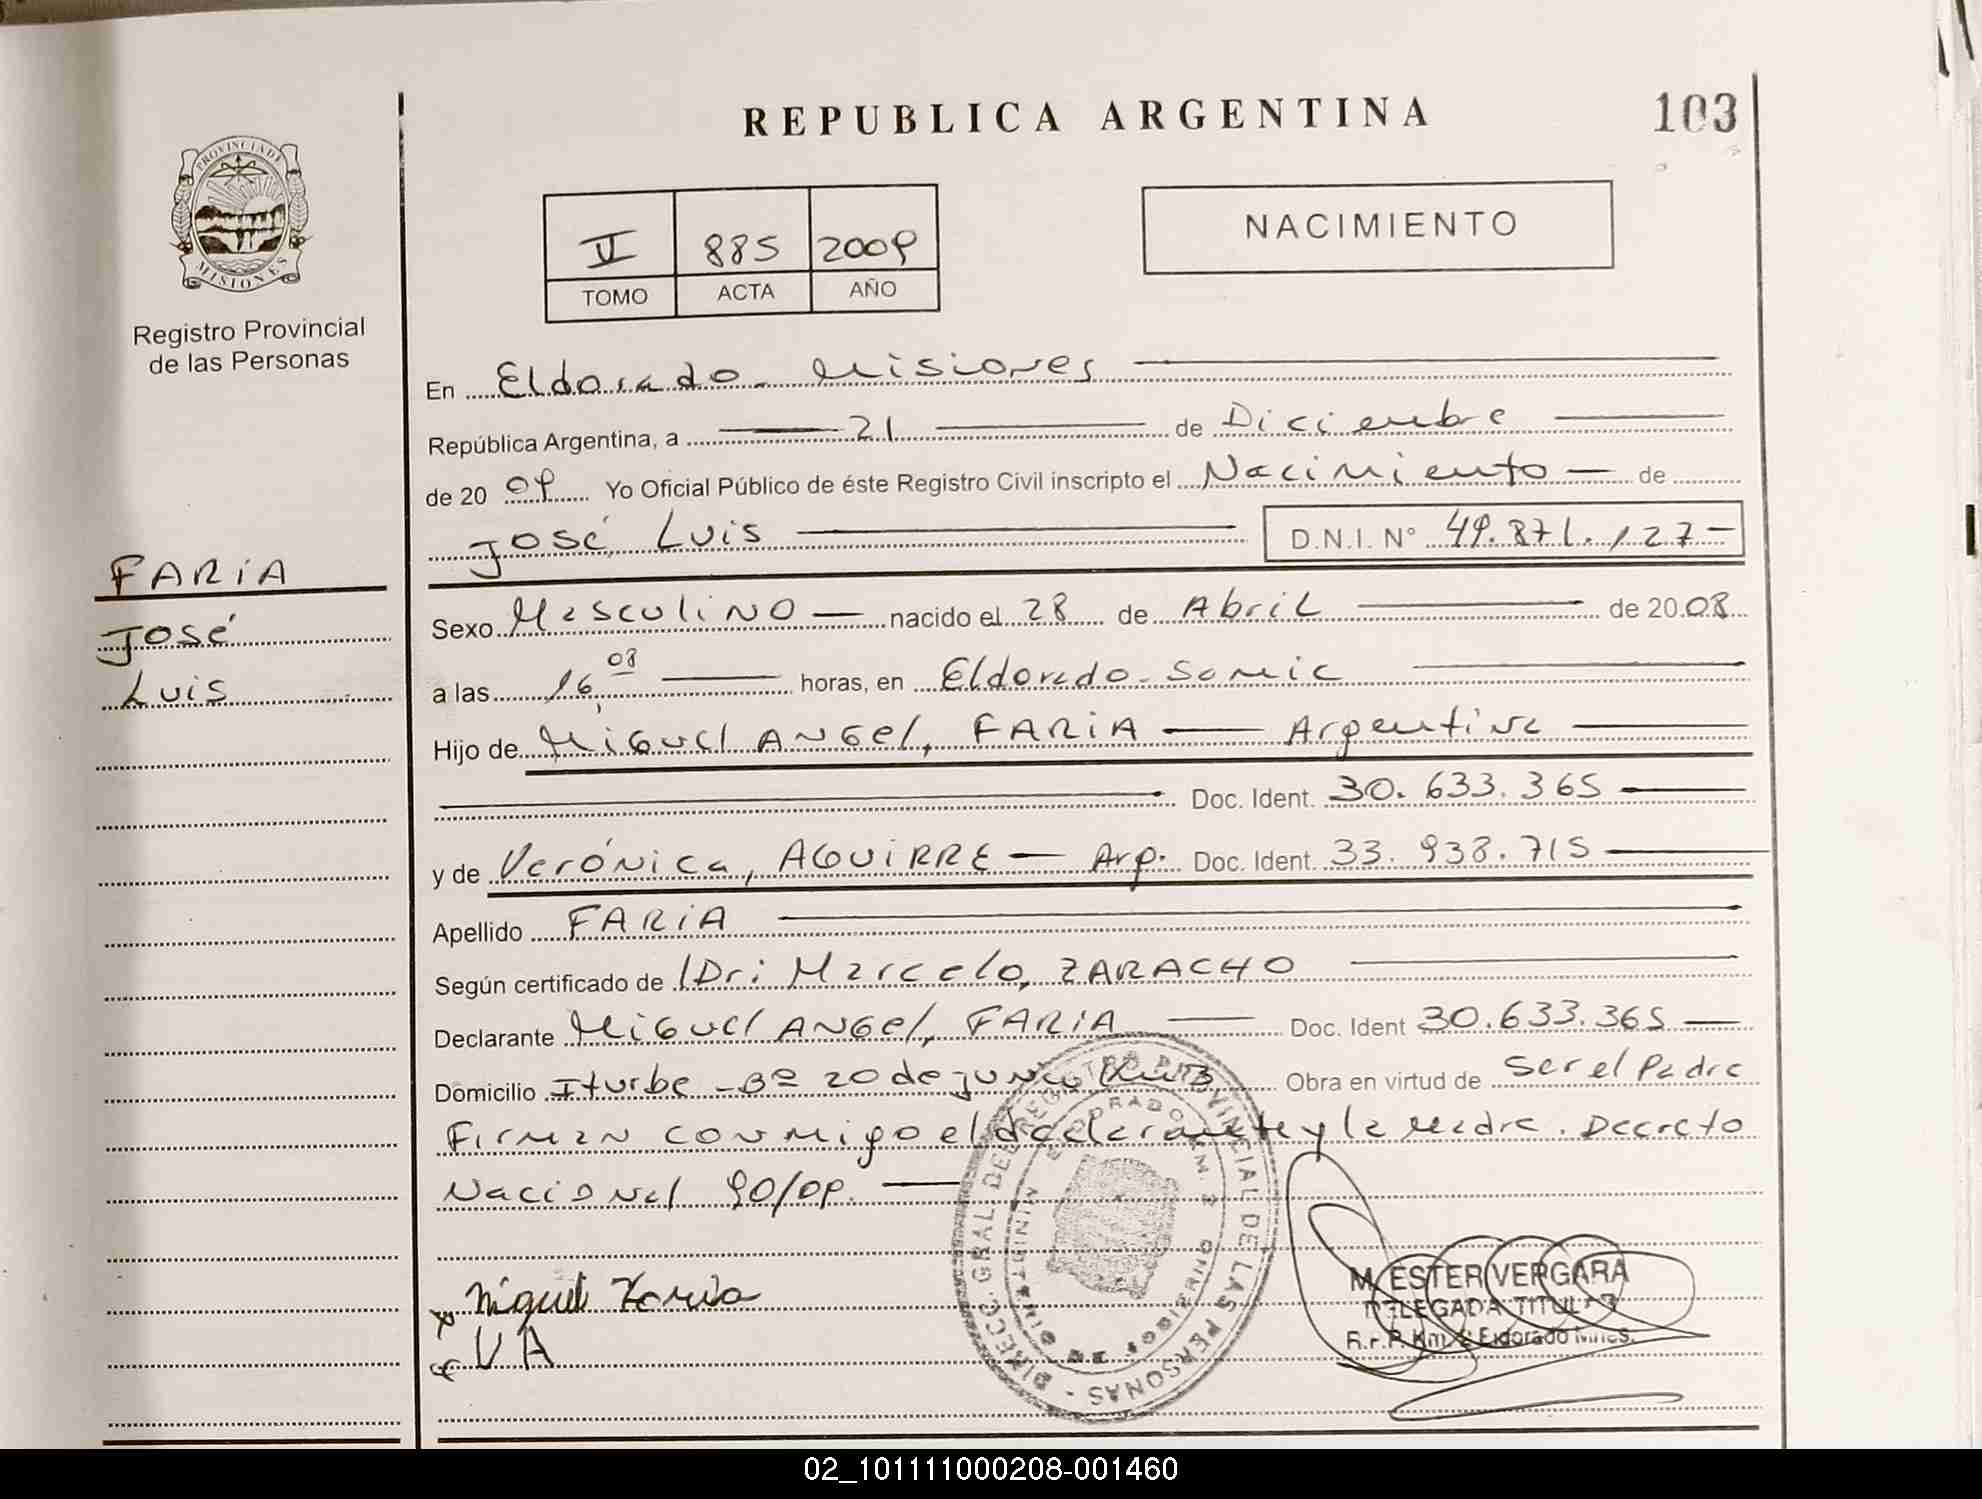 REPUBLICA ARGENTINA
103
PROVINCIA DE
MISIONES
Registro Provincial
de las Personas
V 885 2009
TOMO ACTA AÑO
NACIMIENTO
En Eldorado - Misiones
República Argentina, a 21 de Diciembre
de 2009 Yo Oficial Público de éste Registro Civil inscripto el Nacimiento de
José Luis D.N.I. N° 49.871.127
FARIA
José
Luis
Sexo Masculino nacido el 28 de Abril de 2008
a las 16,08 horas, en Eldorado - Samic
Hijo de Miguel ANGel, FARIA Argentina
Doc. Ident. 30.633.365
y de Verónica, AGUIRRE Arg. Doc. Ident. 33.938.715
Apellido FARIA
Según certificado de Marcelo, ZARACHO
Declarante Miguel ANGel, FARIA Doc. Ident 30.633.365
Domicilio Iturbe - Bº 20 de junio Obra en virtud de Ser el Padre
Firman conmigo el declarante y la Madre. Decreto
Nacional 90/09.
DIRECC. GRAL. DEL REGISTRO PROVINCIAL DE LAS PERSONAS
Miguel Faria
V A
M. ESTER VERGARA
DELEGADA TITULAR
Eldorado Mnes.
02_101111000208-001460